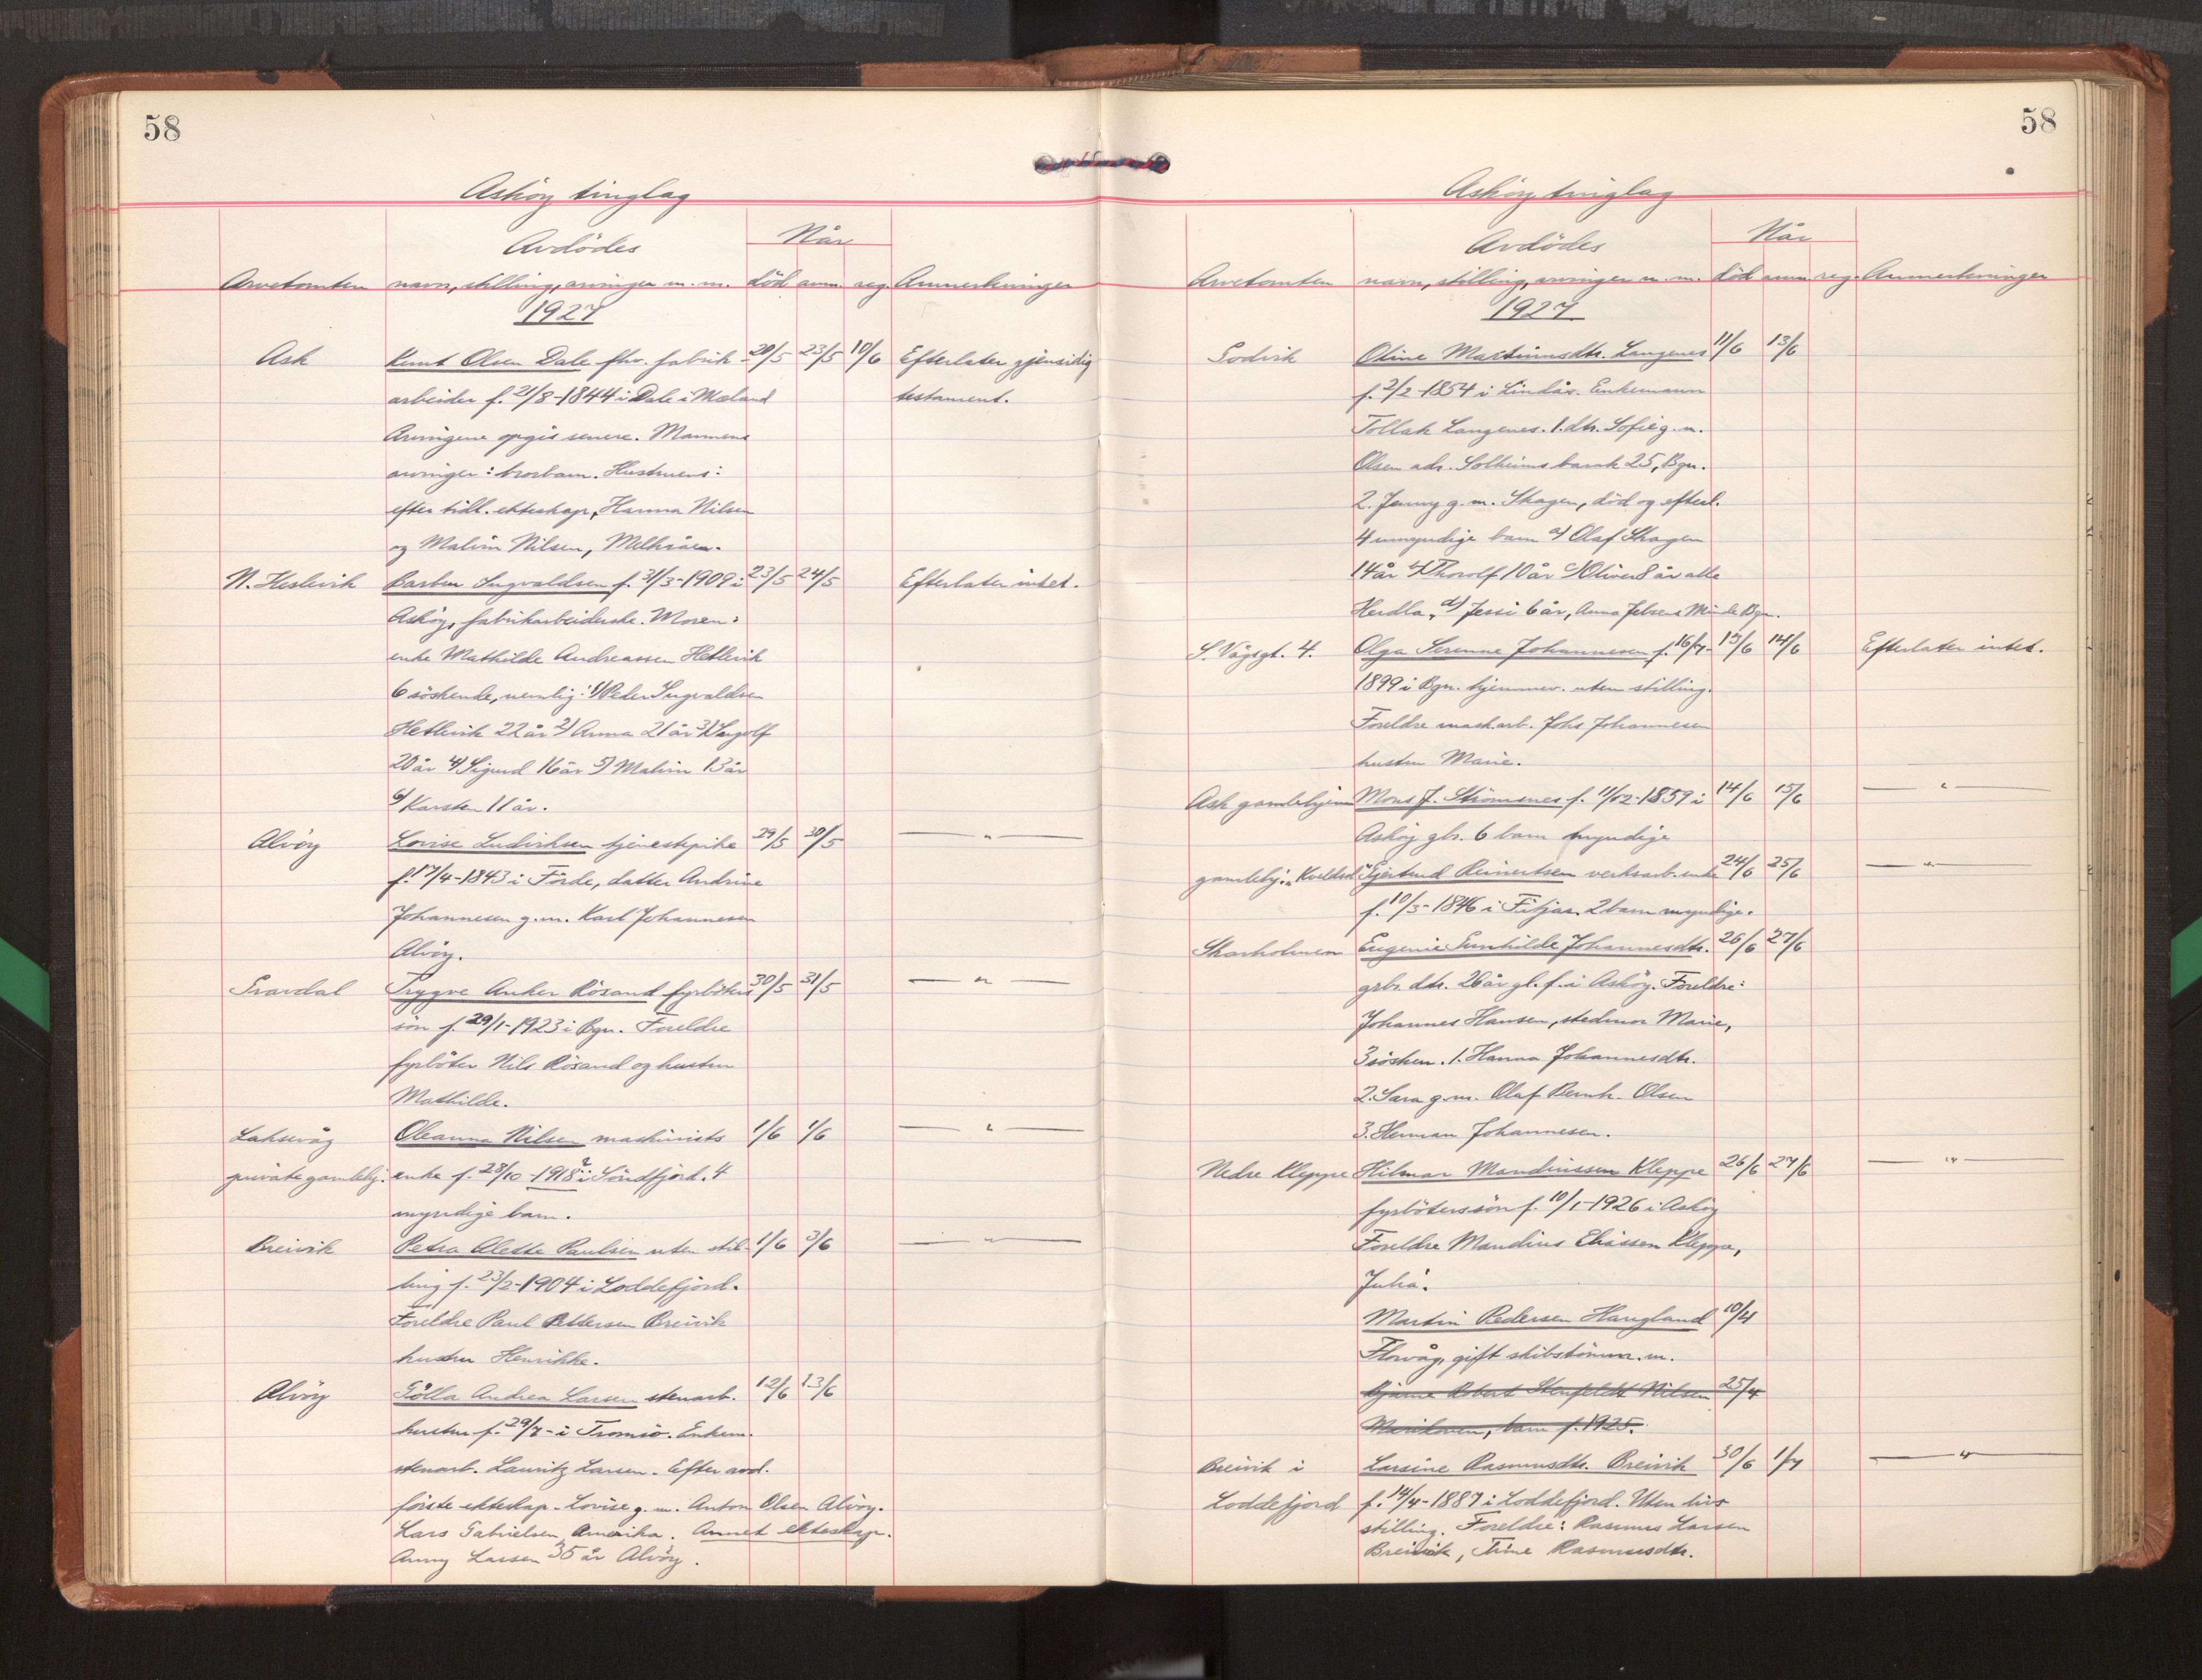 58
Asköy tinglag
Avdödes
Når
Arvetomten navn, stilling, arvinger m. m. död anm. reg. Anmerkninger
1927
Ask Knut Olsen Dale fhv. fabrik- 20/5 23/5 10/6 Efterlater gjensidig
arbeider f. 21/8-1844 i Dale i testament.
Arvingene opgis senere. Mannens
arvinger: brorbarn. Hustruens:
efter tidl. ekteskap, Hanna Nilsen
og Malvin Nilsen,
N. Heslevik Ingvaldsen f. 31/3-1909 i 23/5 24/5 Efterlater intet.
Asköy, fabrikarbeiderske. Moren:
enke Mathilde Andreassen Hetlevik
6 söskende, nemlig: 1) Peder Ingvaldsen
Hetlevik 22 år 2) Anna 21 år 3) Ingolf
20 år 4) Sigurd 16 år 5) Malvin 13 år
6) Karsten 11 år.
Alvöy Lovise Ludviksen tjenestepike 29/5 30/5 — " —
f. 17/4-1843 i Förde, datter Andrine
Johannesen g. m. Karl Johannesen
Alvöy.
Gravdal Trygve Anker Rösand fyrböters 30/5 31/5 — " —
sön f. 29/1-1923 i Bgn. Foreldre
fyrböter Nils Rösand og hustru
Mathilde.
Laksevåg Oleanna Nilsen maskinists 1/6 1/6 — " —
private gamlehj. enke f. 28/10-1918? i Söndfjord. 4
myndige barn.
Breivik Petra Alette Paulsen uten stil- 1/6 3/6 — " —
ling f. 23/2-1904 i Loddefjord.
Foreldre Paul Pettersen Breivik
hustru Henrikke.
Alvöy Andrea Larsen stenarb. 12/6 13/6
hustru f. 29/7- i Tromsö. Enkem.
stenarb. Lauritz Larsen. Efter avd.
förste ekteskap. Lovise g. m. Anton Olsen Alvöy.
Lars Gabrielsen Amerika. Annet ekteskap.
Anny Larsen 35 år Alvöy.
58
Asköy tinglag
Avdödes
Når
Arvetomten navn, stilling, arvinger m. m. död anm. reg. Anmerkninger
1927
Godvik Oline Martinusdtr. Langenes 11/6 13/6
f. 2/2-1854 i Lindås. Enkemann
Tollak Langenes. 1. dtr. Sofie g. m.
Olsen adr. Solheims bank 25, Bgn.
2. Jenny g. m. Skagen, död og efterl.
4 umyndige barn a) Olaf Skagen
14 år b) Thorolf 10 år c) Oliver 8 år alle
Herdla, d) Jessi 6 år, Anna Bgn.
S. Vågsgt. 4. Olga Serenne Johannesen f. 16/7- 13/6 14/6 Efterlater intet.
1899 i Bgn. hjemmev. uten stilling.
Foreldre mask.arb. Johs Johannesen
hustru Marie.
Ask gamlehjem Mons J. Strömsnes f. 11/12-1859 i 14/6 15/6 — " —
Asköy gbr. 6 barn myndige
gamlehj. "Kveldsol" Gjertrud Reinertsen verksarb. enke 24/6 25/6 — " —
f. 10/3-1846 i Fitjar. 2 barn myndige.
Skarholmen Eugenie Gunhilde Johannesdtr. 26/6 27/6
grbr. dtr. 26 år gl. f. i Asköy. Foreldre:
Johannes Hansen, stedmor Marie,
3 sösken. 1. Hanna Johannesdtr.
2. Sara g. m. Olaf Bernh. Olsen
3. Herman Johannesen.
Nedre Kleppe Hilmar Mandiussen Kleppe 26/6 27/6 — " —
fyrböterssön f. 10/1-1926 i Asköy
Foreldre Mandius Eliassen Kleppe,
Julia.
Martin Pedersen Haugland 10/4
Florvåg, gift skibstömm. m.
Bjarne Robert Stenfeldt Nilsen 25/4
barn f. 1925.
Breivik i Larsine Rasmusdtr. Breivik 30/6 1/7 — " —
Loddefjord f. 14/4-1887 i Loddefjord. Uten livs
stilling. Foreldre: Rasmus Larsen
Breivik, Trine Rasmusdtr.